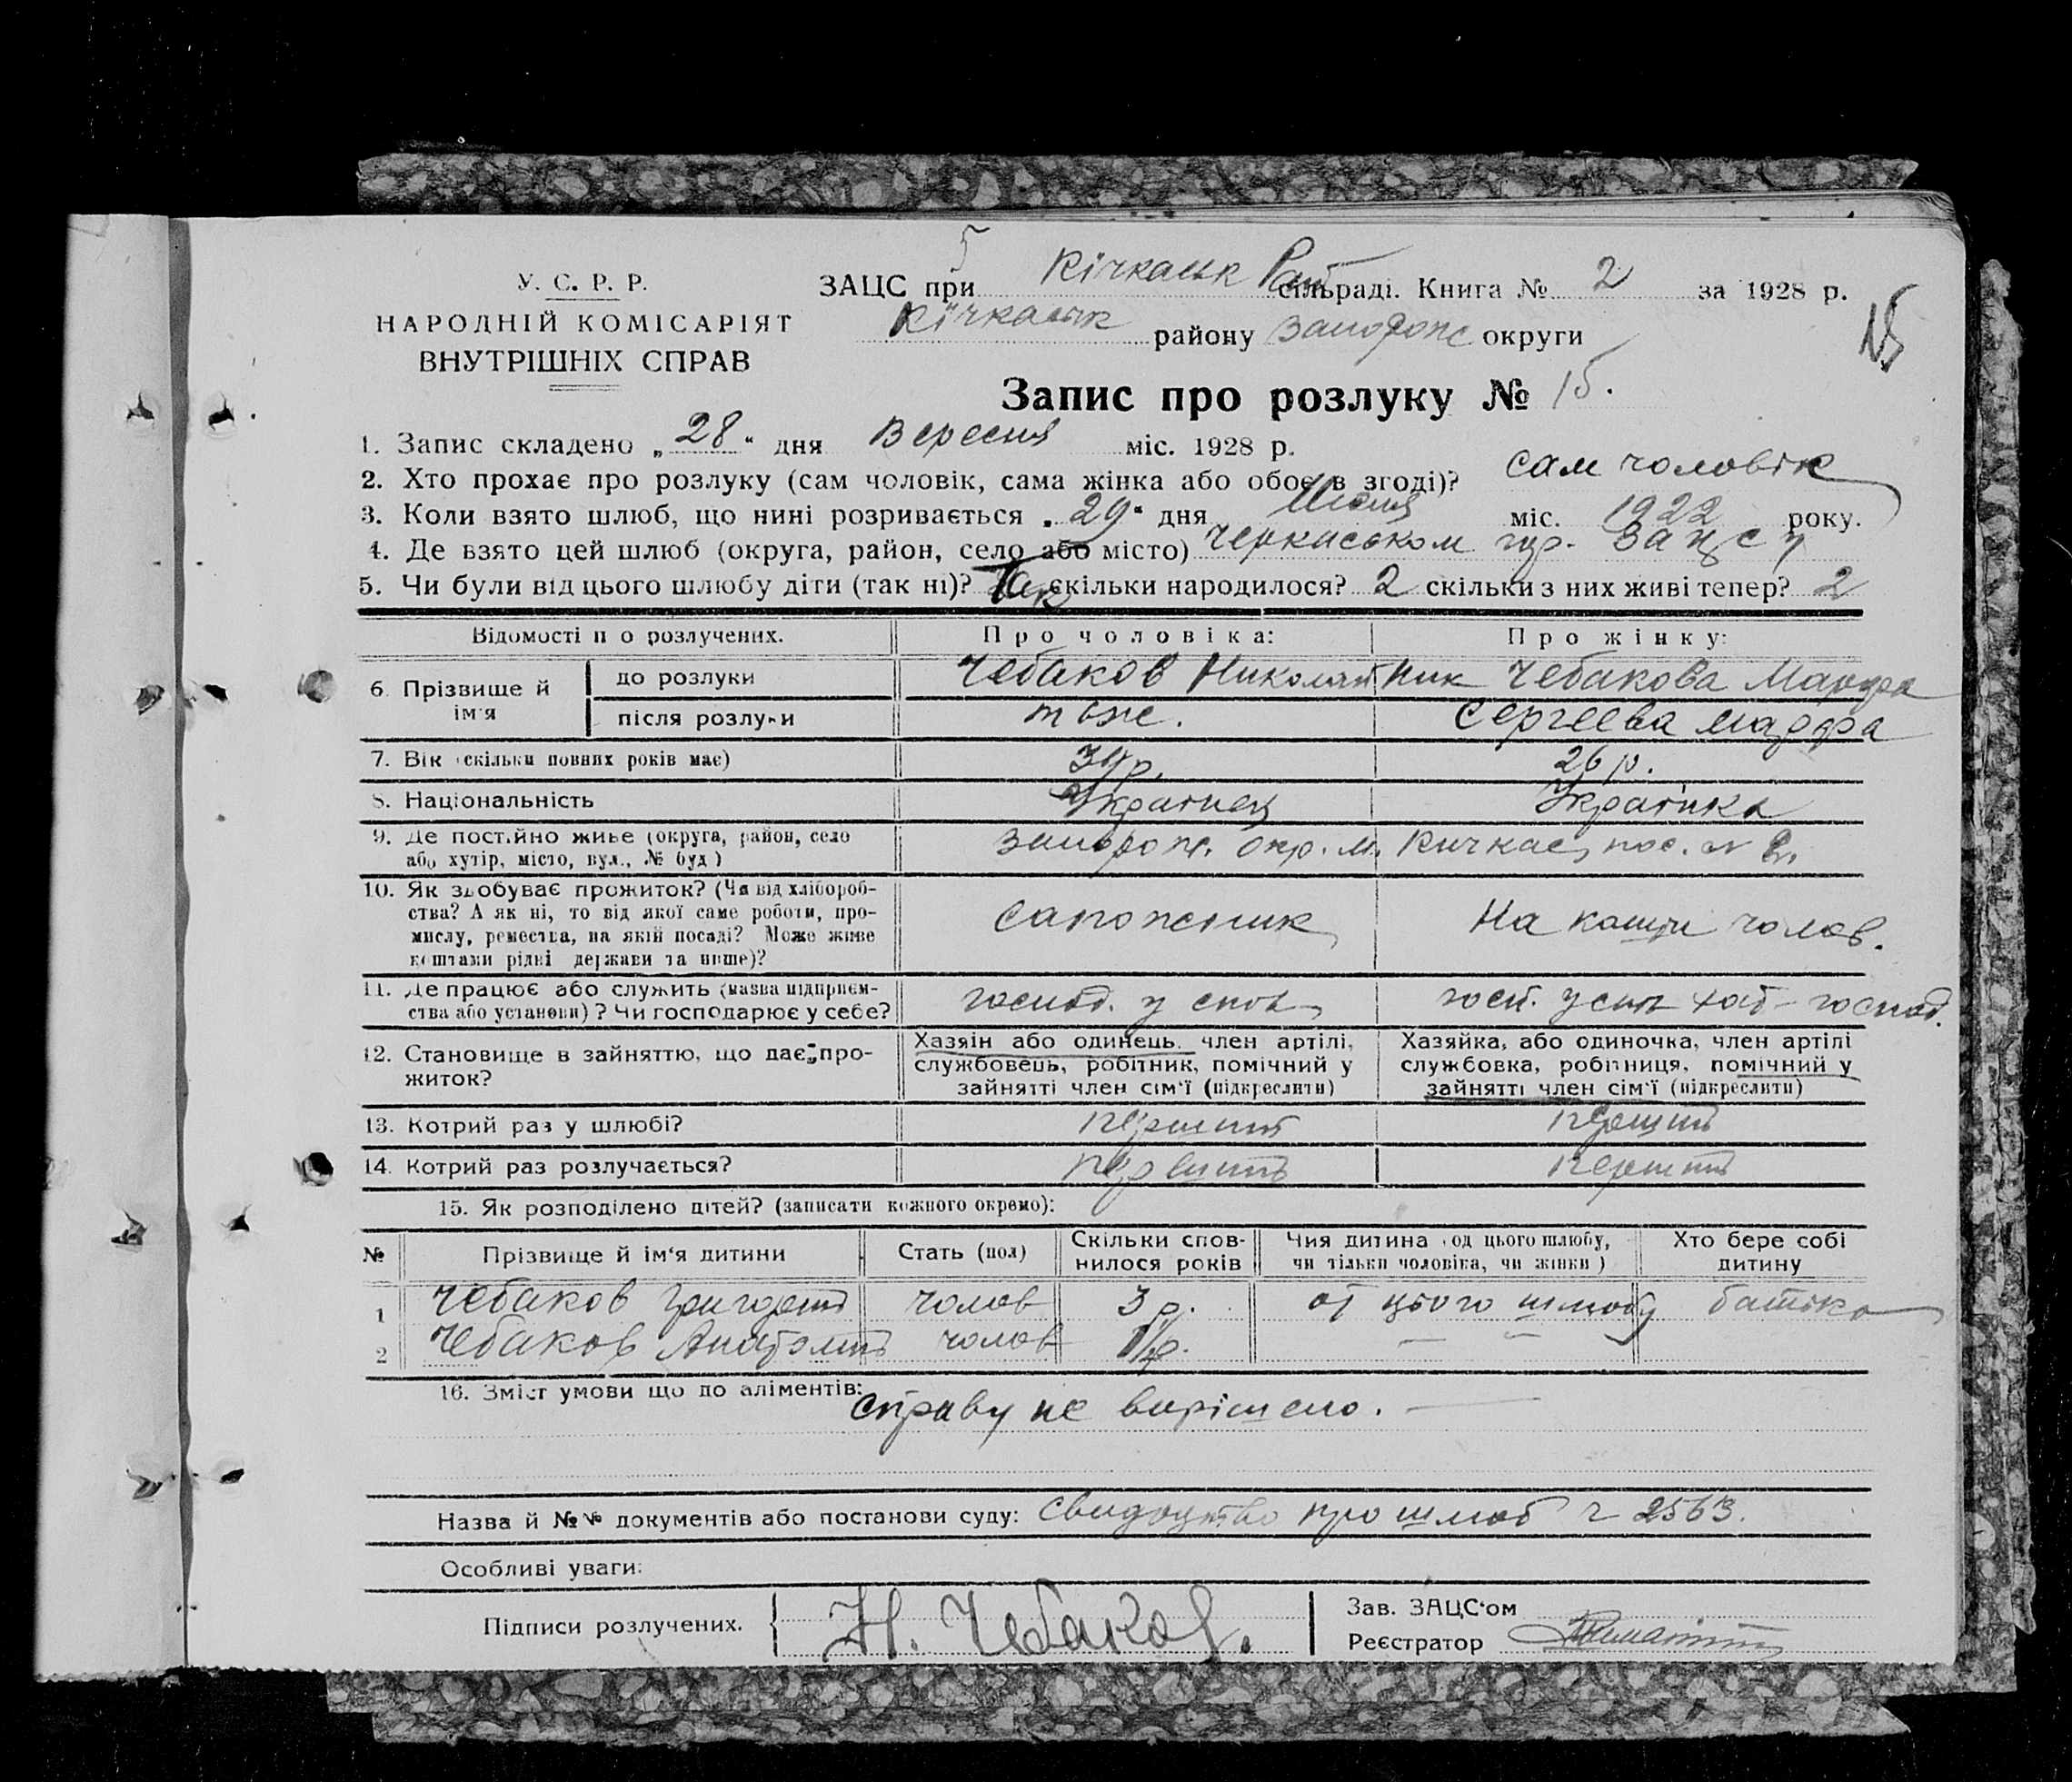 5
У. С. Р. Р.
НАРОДНІЙ КОМІСАРІЯТ
ВНУТРІШНІХ СПРАВ
ЗАЦС при Кічкаськ Рай сільраді. Книга № 2 за 1928 р.
Кічкаськ району Запорож округи
15
Запис про розлуку № 15.
1. Запис складено „28“ дня Вересня міс. 1928 р.
2. Хто прохає про розлуку (сам чоловік, сама жінка або обоє в згоді)? сам чоловік
3. Коли взято шлюб, що нині розривається „29“ дня міс. 1922 року.
4. Де взято цей шлюб (округа, район, село або місто) Черкаським гор. Зацсу
5. Чи були від цього шлюбу діти (так ні)? Так скільки народилося? 2 скільки з них живі тепер? 2
Відомості по розлучених. Про чоловіка: Про жінку:
6. Прізвище й ім'я до розлуки Чебаков Николай Ник Чебакова Марфа
після розлуки тоже. Сергеева Марфа
7. Вік (скільки повних років має) 26 р.
8. Національність Українец Українка
9. Де постійно живе (округа, район, село або хутір, місто, вул., № буд) Запорож. окр. м. Кичкас, пос. №
10. Як здобуває прожиток? (Чи від хлібороб-
ства? А як ні, то від якої саме роботи, про-
мислу, ремества, на якій посаді? Може живе
коштами рідні держави та инше)? сапожник На кошти чолов.
11. Де працює або служить (назва підприєм-
ства або установи)? Чи господарює у себе? господ. у себе господ.
12. Становище в зайняттю, що дає про-
житок?
Хазяїн або одинець, член артілі,
службовець, робітник, помічний у
зайнятті член сім'ї (підкреслити)
Хазяйка, або одиночка, член артілі
службовка, робітниця, помічний у
зайнятті член сім'ї (підкреслити)
13. Котрий раз у шлюбі? перший перший
14. Котрий раз розлучається? перший перший
15. Як розподілено дітей? (записати кожного окремо):
№ Прізвище й ім'я дитини Стать (пол) Скільки спов-
нилося років Чия дитина (од цього шлюбу,
чи тільки чоловіка, чи жінки) Хто бере собі
дитину
1 Чебаков Григорий чолов 3 р. от цього шлюбу батько
2 Чебаков Анатолий чолов — „ —
16. Зміст умови що до аліментів: справу не вирішено. —
Назва й №№ документів або постанови суду: Свидоцтво про шлюб ч 2563.
Особливі уваги:
Підписи розлучених. Н. Чебаков.
Зав. ЗАЦС'ом
Реєстратор